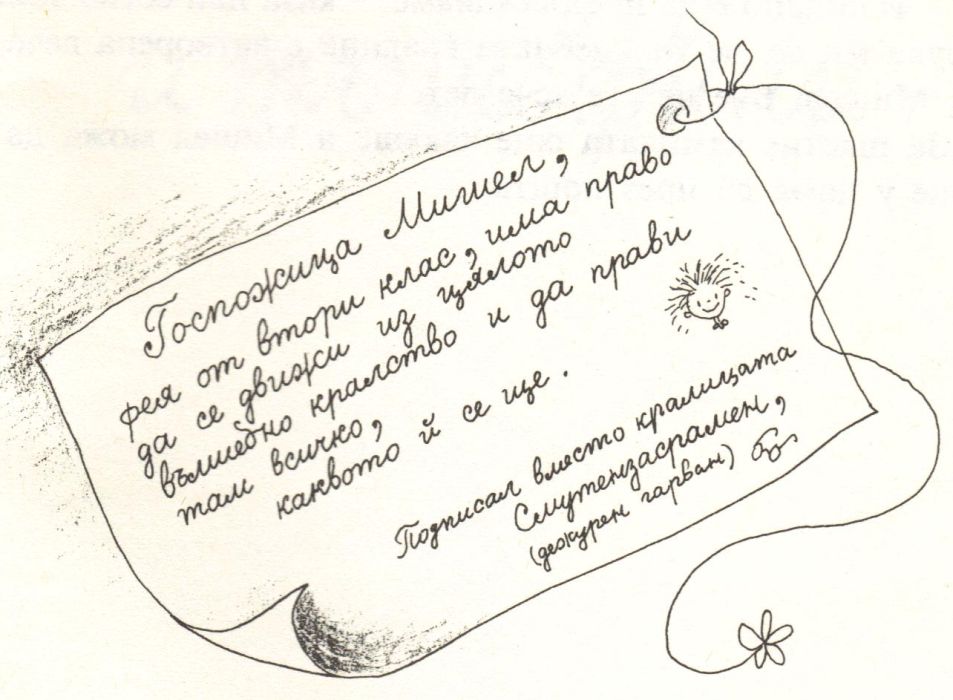 Госпожица Мишел,
фея от втори клас, има право
да се движи из цялото
вълшебно кралство и да прави
там всичко,
каквото й се ще.
Подписал вместо кралицата
Смутензасрамен,
(дежурен гарван)